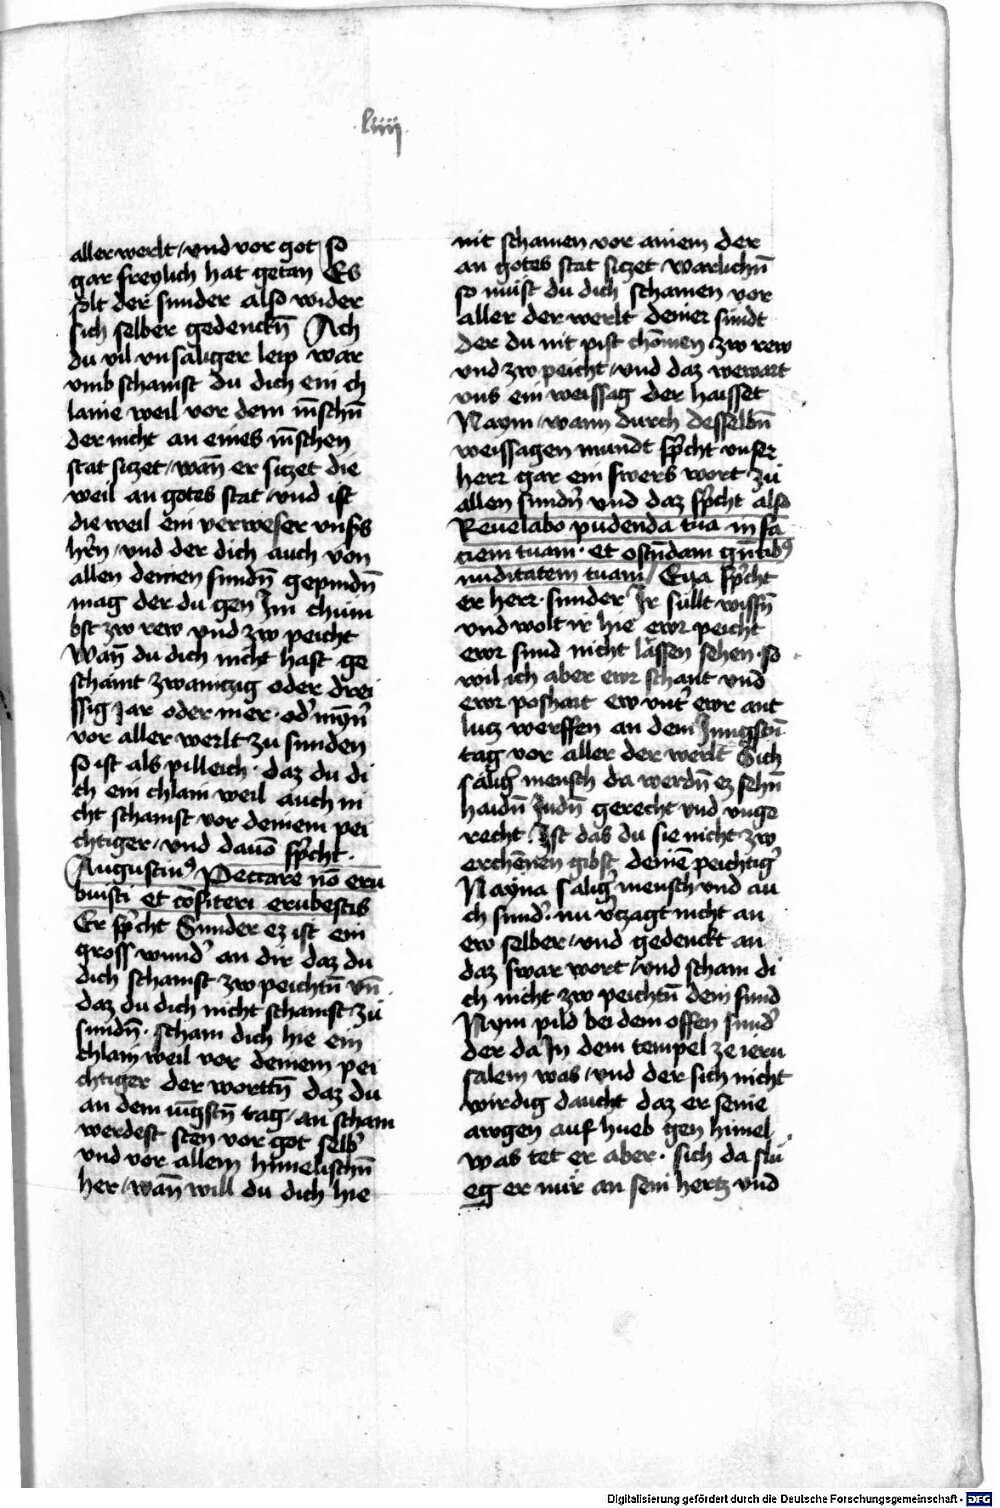 liiij
aller werlt / vnd vor got so
gar freylich hat getan Es
solt der sunder also wider
sich selber gedenckn̄ Ach
du vil vnsaliger leip war
vmb schamst du dich ein ch
laine weil vor dem mēschn̄
der nicht an eines mēschen
stat siczet / wan̄ er siczet die
weil an gotes stat / vnd ist
die weil ein verweser vnsꝰs
hꝰrn / vnd der dich auch von
allen deinen sundn̄ gepindn̄
mag der du gen Im chüm
bst zw rew vnd zw peicht
Wan̄ du dich nicht hast ge
schamt zwainczig oder drei
ssig Jar oder mer · odꝰ mȳnꝰ
vor aller werlt zu sunden
so ist als pilleich · daz du di
ch ein chlain weil auch ni
cht schamst vor deinem pei
chtiger / vnd dauō sp̄cht ·
Augustinꝰ Peccare nō eru
buisti et cōfiteri erubescis
Er sp̄cht Sunder ez ist ein
gross wundꝰ an dir daz du
dich schamst zw peichtn̄ vn̄
daz du dich nicht schamst zu
sundn̄ · scham dich hie ein
chlain weil vor deinem pei
chtiger der wortt̄n daz du
an dem iūgstn̄ tag / an scham
werdest sten vor got selbꝰ
vnd vor allem himelischn̄
her / wan̄ will du dich hie
nit schamen vor ainem der
an gotes stat siczet warlichn̄
so must du dich schamen vor
aller der werlt deiner sundt
der du nit pist chōmen zw rew
vnd zw peicht / vnd daz wewart
vns ein weissag der haisset
Naym / wann durch desselbn̄
weissagen mundt sp̄cht vnser
herr gar ein swers wort zu
allen sundn̄ vnd daz sp̄cht also
Reuelabo pudenda tua in fa
ciem tuam · et ostn̄dam gn̄tibꝰ
nuditatem tuam / Eya sp̄cht
er herr · sunder Ir sullt wissn̄
vnd wolt ir hie ewr peicht
ewr sund nicht lassen sehen · so
wil ich aber ewr schant vnd
ewr poshait ew vntꝰ ewr ant
lucz werffen an dem Jungstn̄
tag vor aller der werlt Sich
saligꝰ mensch da werdn̄ ez sehn̄
haidn̄ Judn̄ gerecht vnd vnge
recht Ist das du sie nicht zw
erchennen gibst deinē peichtigꝰ
Nayna saligꝰ mensch vnd au
ch sundꝰ · nu vꝰczagt nicht an
ew selber / vnd gedenckt an
daz swar wort / vnd scham di
ch nicht zw peichtn̄ dein sund
Nym pild bei dem offen sundꝰ
der da In dem tempel ze ieru
salem was / vnd der sich nicht
wirdig daucht daz er seine
awgen auf hueb gen himel
was tet er aber · sich da slu
eg er nur an sein hertz vnd
Digitalisierung gefördert durch die Deutsche Forschungsgemeinschaft - DFG